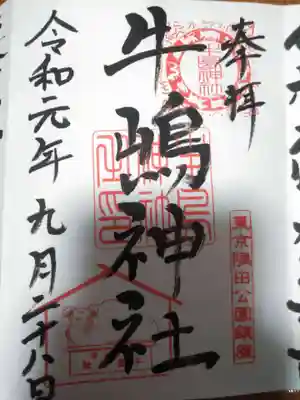 奉拝
牛嶋神社
令和元年九月二十八日
東京隅田公園鎮座